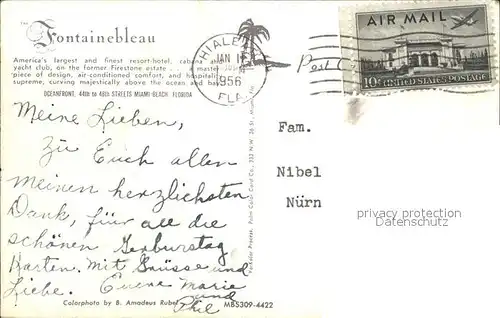 The
Fontainebleau
America's largest and finest resort-hotel, cabana and
yacht club, on the former Firestone estate master
piece of design, air-conditioned comfort, and hospitali
supreme, curving majestically above the ocean and
OCEANFRONT, 44th to 48th STREETS MIAMI BEACH, FLORIDA
HIALEAH
JAN
1956
FLA
Post C
AIR MAIL
10¢ UNITED STATES POSTAGE
Meine Lieben,
Zu Euch allen
meinen herzlichsten
Dank, für all die
schönen Gerburstag
Karten. Mit Grüsse und
Liebe. Euere Marie
und
Phil
Fam.
Nibel
Nürn
privacy protection
Datenschutz
Colorphoto by B. Amadeus Rubel
MBS309-4422